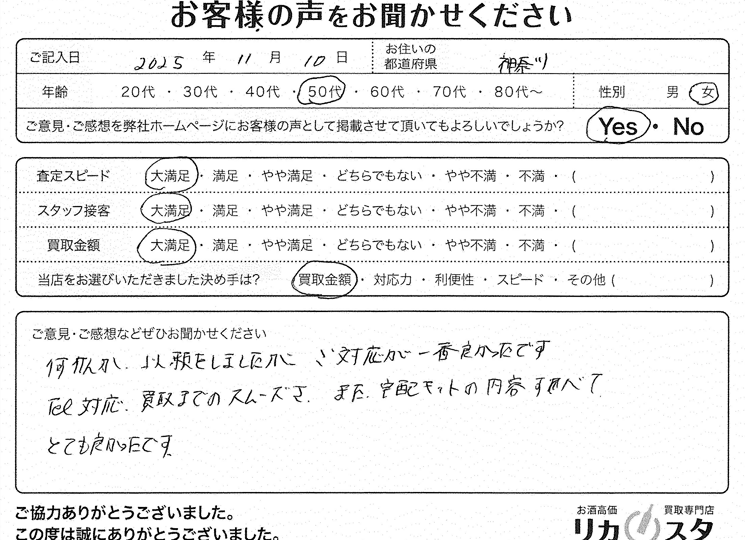 お客様の声をお聞かせください
ご記入日 2025 年 11 月 10 日 お住いの都道府県 神奈川
年齢 20代 ・ 30代 ・ 40代 ・ 50代 ・ 60代 ・ 70代 ・ 80代〜 性別 男 ・ 女
ご意見・ご感想を弊社ホームページにお客様の声として掲載させて頂いてもよろしいでしょうか? Yes ・ No
査定スピード 大満足 ・ 満足 ・ やや満足 ・ どちらでもない ・ やや不満 ・ 不満 ・ ( )
スタッフ接客 大満足 ・ 満足 ・ やや満足 ・ どちらでもない ・ やや不満 ・ 不満 ・ ( )
買取金額 大満足 ・ 満足 ・ やや満足 ・ どちらでもない ・ やや不満 ・ 不満 ・ ( )
当店をお選びいただきました決め手は? 買取金額 ・ 対応力 ・ 利便性 ・ スピード ・ その他 ( )
ご意見・ご感想などぜひお聞かせください
何社か、依頼をしましたが ご対応が一番良かったです
Tel対応、買取までのスムーズさ、また、宅配キットの内容すべて
とても良かったです
ご協力ありがとうございました。
この度は誠にありがとうございました。
お酒高価 買取専門店
リカスタ